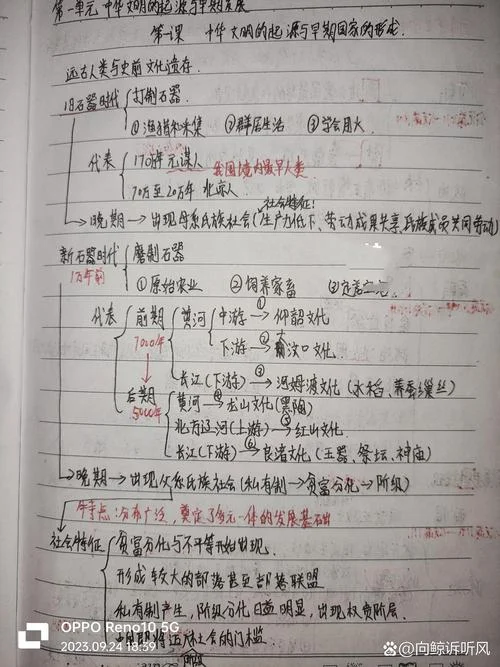 第一单元 中华文明的起源与早期发展
第一课 中华文明的起源与早期国家的形成.
远古人类与史前文化遗存.
旧石器时代 打制石器.
①渔猎和采集 ②群居生活 ③学会用火
代表 170万年 元谋人 我国境内最早人类
70万至20万年 北京人
社会特征:
晚期→出现母系氏族社会(生产力低下、劳动成果共享,氏族成员共同劳动)
新石器时代 磨制石器
1万年前 ①原始农业 ②饲养家畜
代表 前期 黄河 中游→①仰韶文化
7000年 下游→②大汶口文化
长江(下游)→③河姆渡文化(水稻、养蚕缫丝)
后期 黄河④→龙山文化(黑陶)
5000年 北方辽河(上游)⑤→红山文化
长江(下游)⑥→良渚文化(玉器、祭坛、神庙)
晚期→出现父系氏族社会(私有制→贫富分化→阶级)
特点:分布广泛,奠定了多元一体的发展基础
社会特征 贫富分化与不平等开始出现.
形成较大的部落甚至部落联盟
私有制产生,阶级分化日益明显,出现权贵阶层.
中国即将迈入社会的门槛.
OPPO Reno10 5G
2023.09.24 18:59
@向鲸诉听风